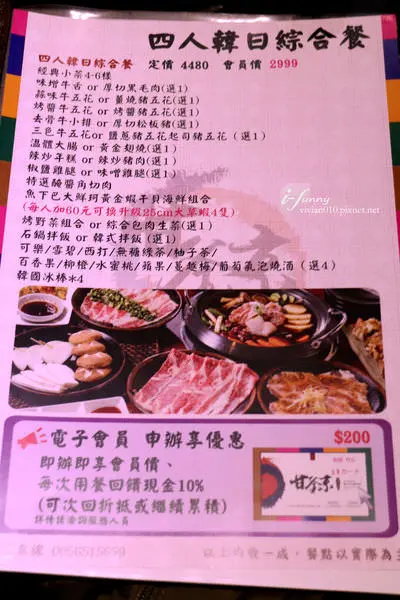 四人韓日綜合餐
四人韓日綜合餐 定價 4480 會員價 2999
經典小菜4-6樣
味增牛舌 or 厚切黑毛肉(選1)
蒜味牛五花 or 薑燒豬五花(選1)
烤醬牛五花 or 烤醬豬五花(選1)
去骨牛小排 or 厚切松板豬(選1)
三色牛五花or 鹽蔥豬五花起司豬五花 (選1)
溫體大腸 or 黃金翅燒(選1)
辣炒年糕 or 辣炒豬肉(選1)
椒鹽雞腿 or 味噌雞腿(選1)
特選醃醬角切肉
魚下巴大鮮珂黃金蝦干貝海鮮組合
(每人加60元可換升級25cm大草蝦4隻)
烤野菜組合 or 綜合包肉生菜(選1)
石鍋拌飯 or 韓式拌飯(選1)
可樂/雪碧/西打/無糖綠茶/柚子茶/
百香果/柳橙/水蜜桃/蘋果/蔓越梅/葡萄氣泡燒酒 (選4)
韓國冰棒*4
i-fanny
vivian010.pixnet.net
電子會員 申辦享優惠
$200
即辦即享會員價、
每次用餐回饋現金10%
(可次回折抵或繼續累積)
詳情請洽詢服務人員
以上均會一成，餐點以實際為主